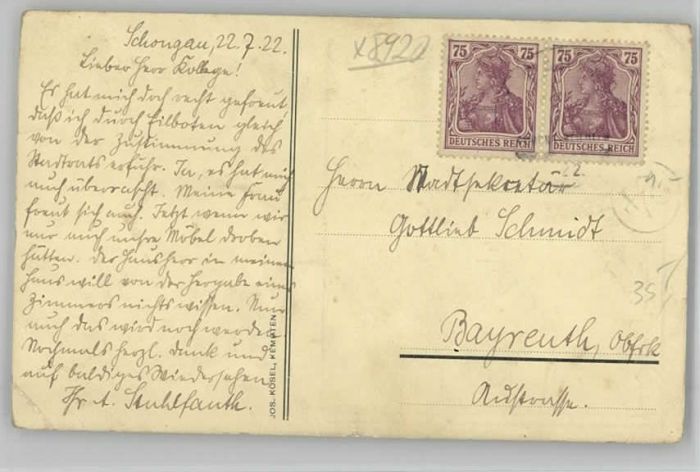 Schongau, 22.7.22.
Lieber Herr Kollege!
Es hat mich doch recht gefreut,
daß ich durch Eilboten gleich
von der Zustimmung des
Stadtrats erfuhr. Ja, es hat mich
auch überrascht. Meine Frau
freut sich auch. Jetzt wenn wir
nur auch unsre Möbel droben
hätten. Der Hausherr in meinem
Haus will von der Hergabe eines
Zimmers nichts wissen. Nun
auch das wird noch werden.
Nochmals herzl. Dank und
auf baldiges Wiedersehen
Ihr A. Stuhlfauth.
JOS. KÖSEL, KEMPTEN
x8920
75 75 75 75
DEUTSCHES REICH DEUTSCHES REICH
Herrn Stadtsekretär
Gottlieb Schmidt
35
Bayreuth, Obfrk
Austrasse.